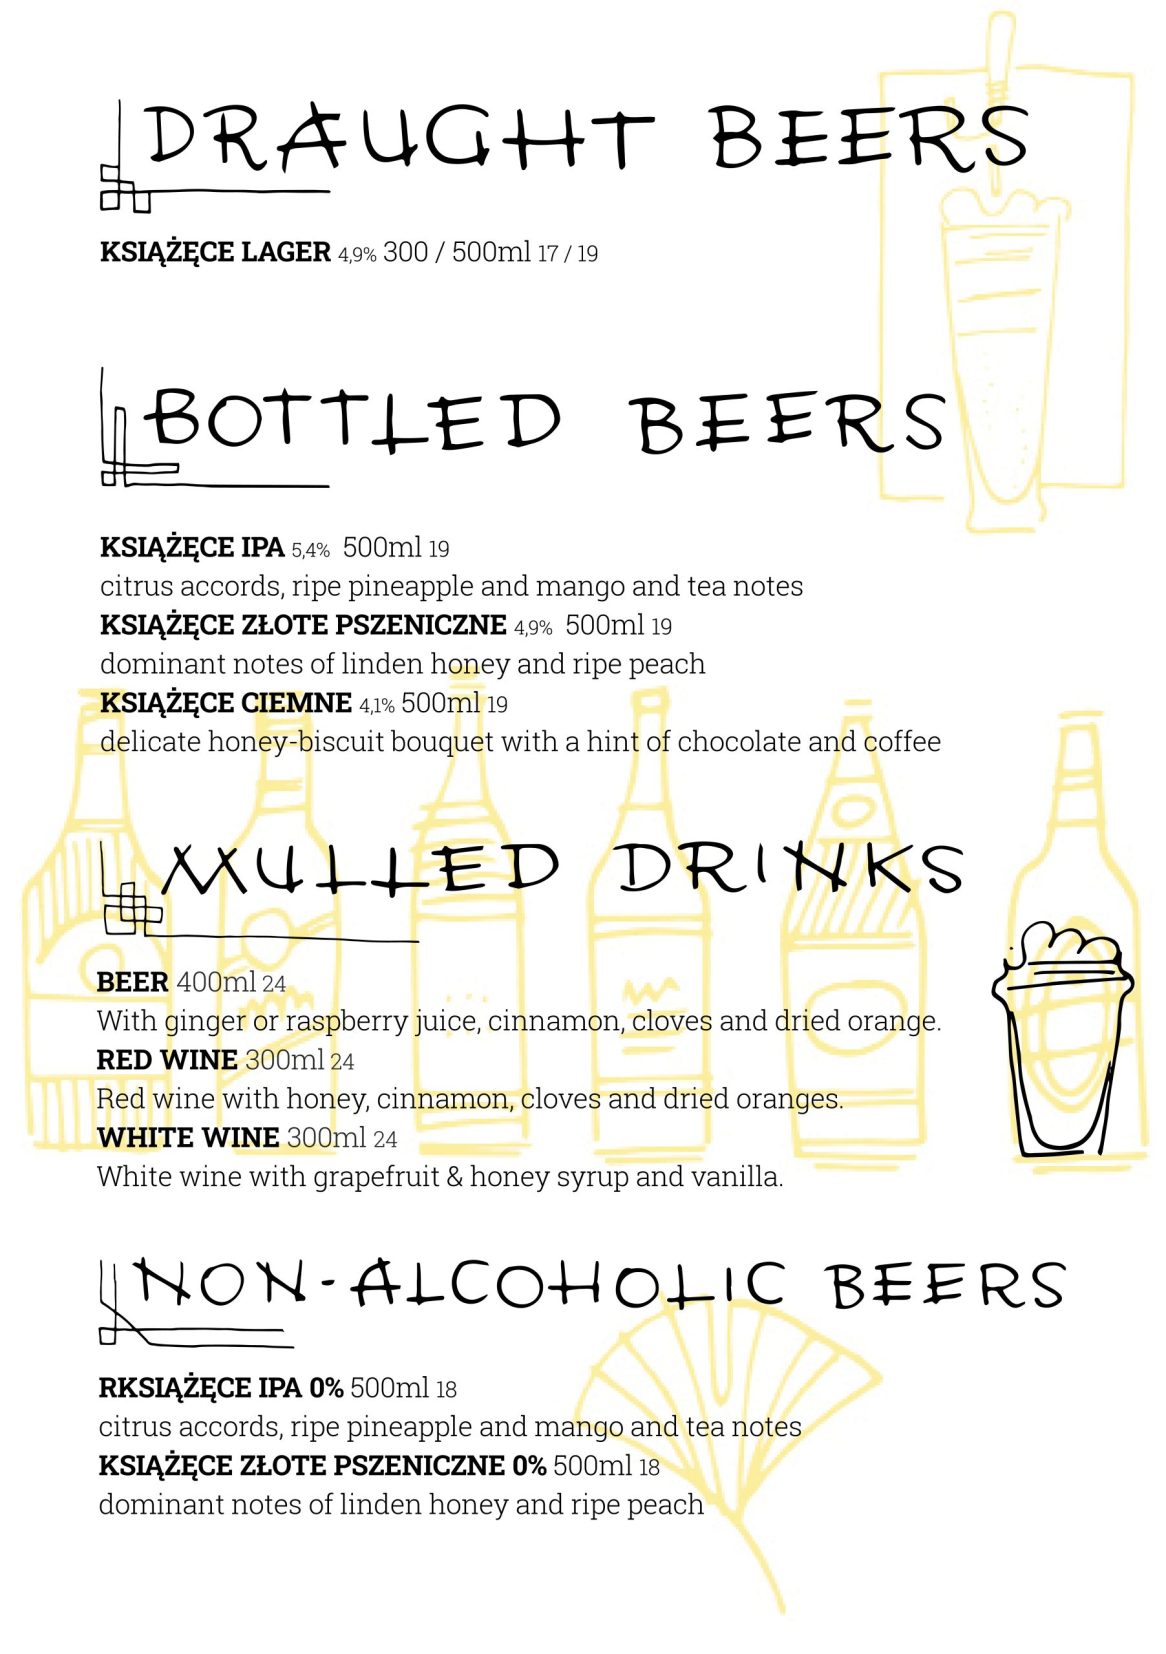 DRAUGHT BEERS
KSIĄŻĘCE LAGER 4,9% 300 / 500ml 17 / 19
BOTTLED BEERS
KSIĄŻĘCE IPA 5,4% 500ml 19
citrus accords, ripe pineapple and mango and tea notes
KSIĄŻĘCE ZŁOTE PSZENICZNE 4,9% 500ml 19
dominant notes of linden honey and ripe peach
KSIĄŻĘCE CIEMNE 4,1% 500ml 19
delicate honey-biscuit bouquet with a hint of chocolate and coffee
MULLED DRINKS
BEER 400ml 24
With ginger or raspberry juice, cinnamon, cloves and dried orange.
RED WINE 300ml 24
Red wine with honey, cinnamon, cloves and dried oranges.
WHITE WINE 300ml 24
White wine with grapefruit & honey syrup and vanilla.
NON-ALCOHOLIC BEERS
RKSIĄŻĘCE IPA 0% 500ml 18
citrus accords, ripe pineapple and mango and tea notes
KSIĄŻĘCE ZŁOTE PSZENICZNE 0% 500ml 18
dominant notes of linden honey and ripe peach